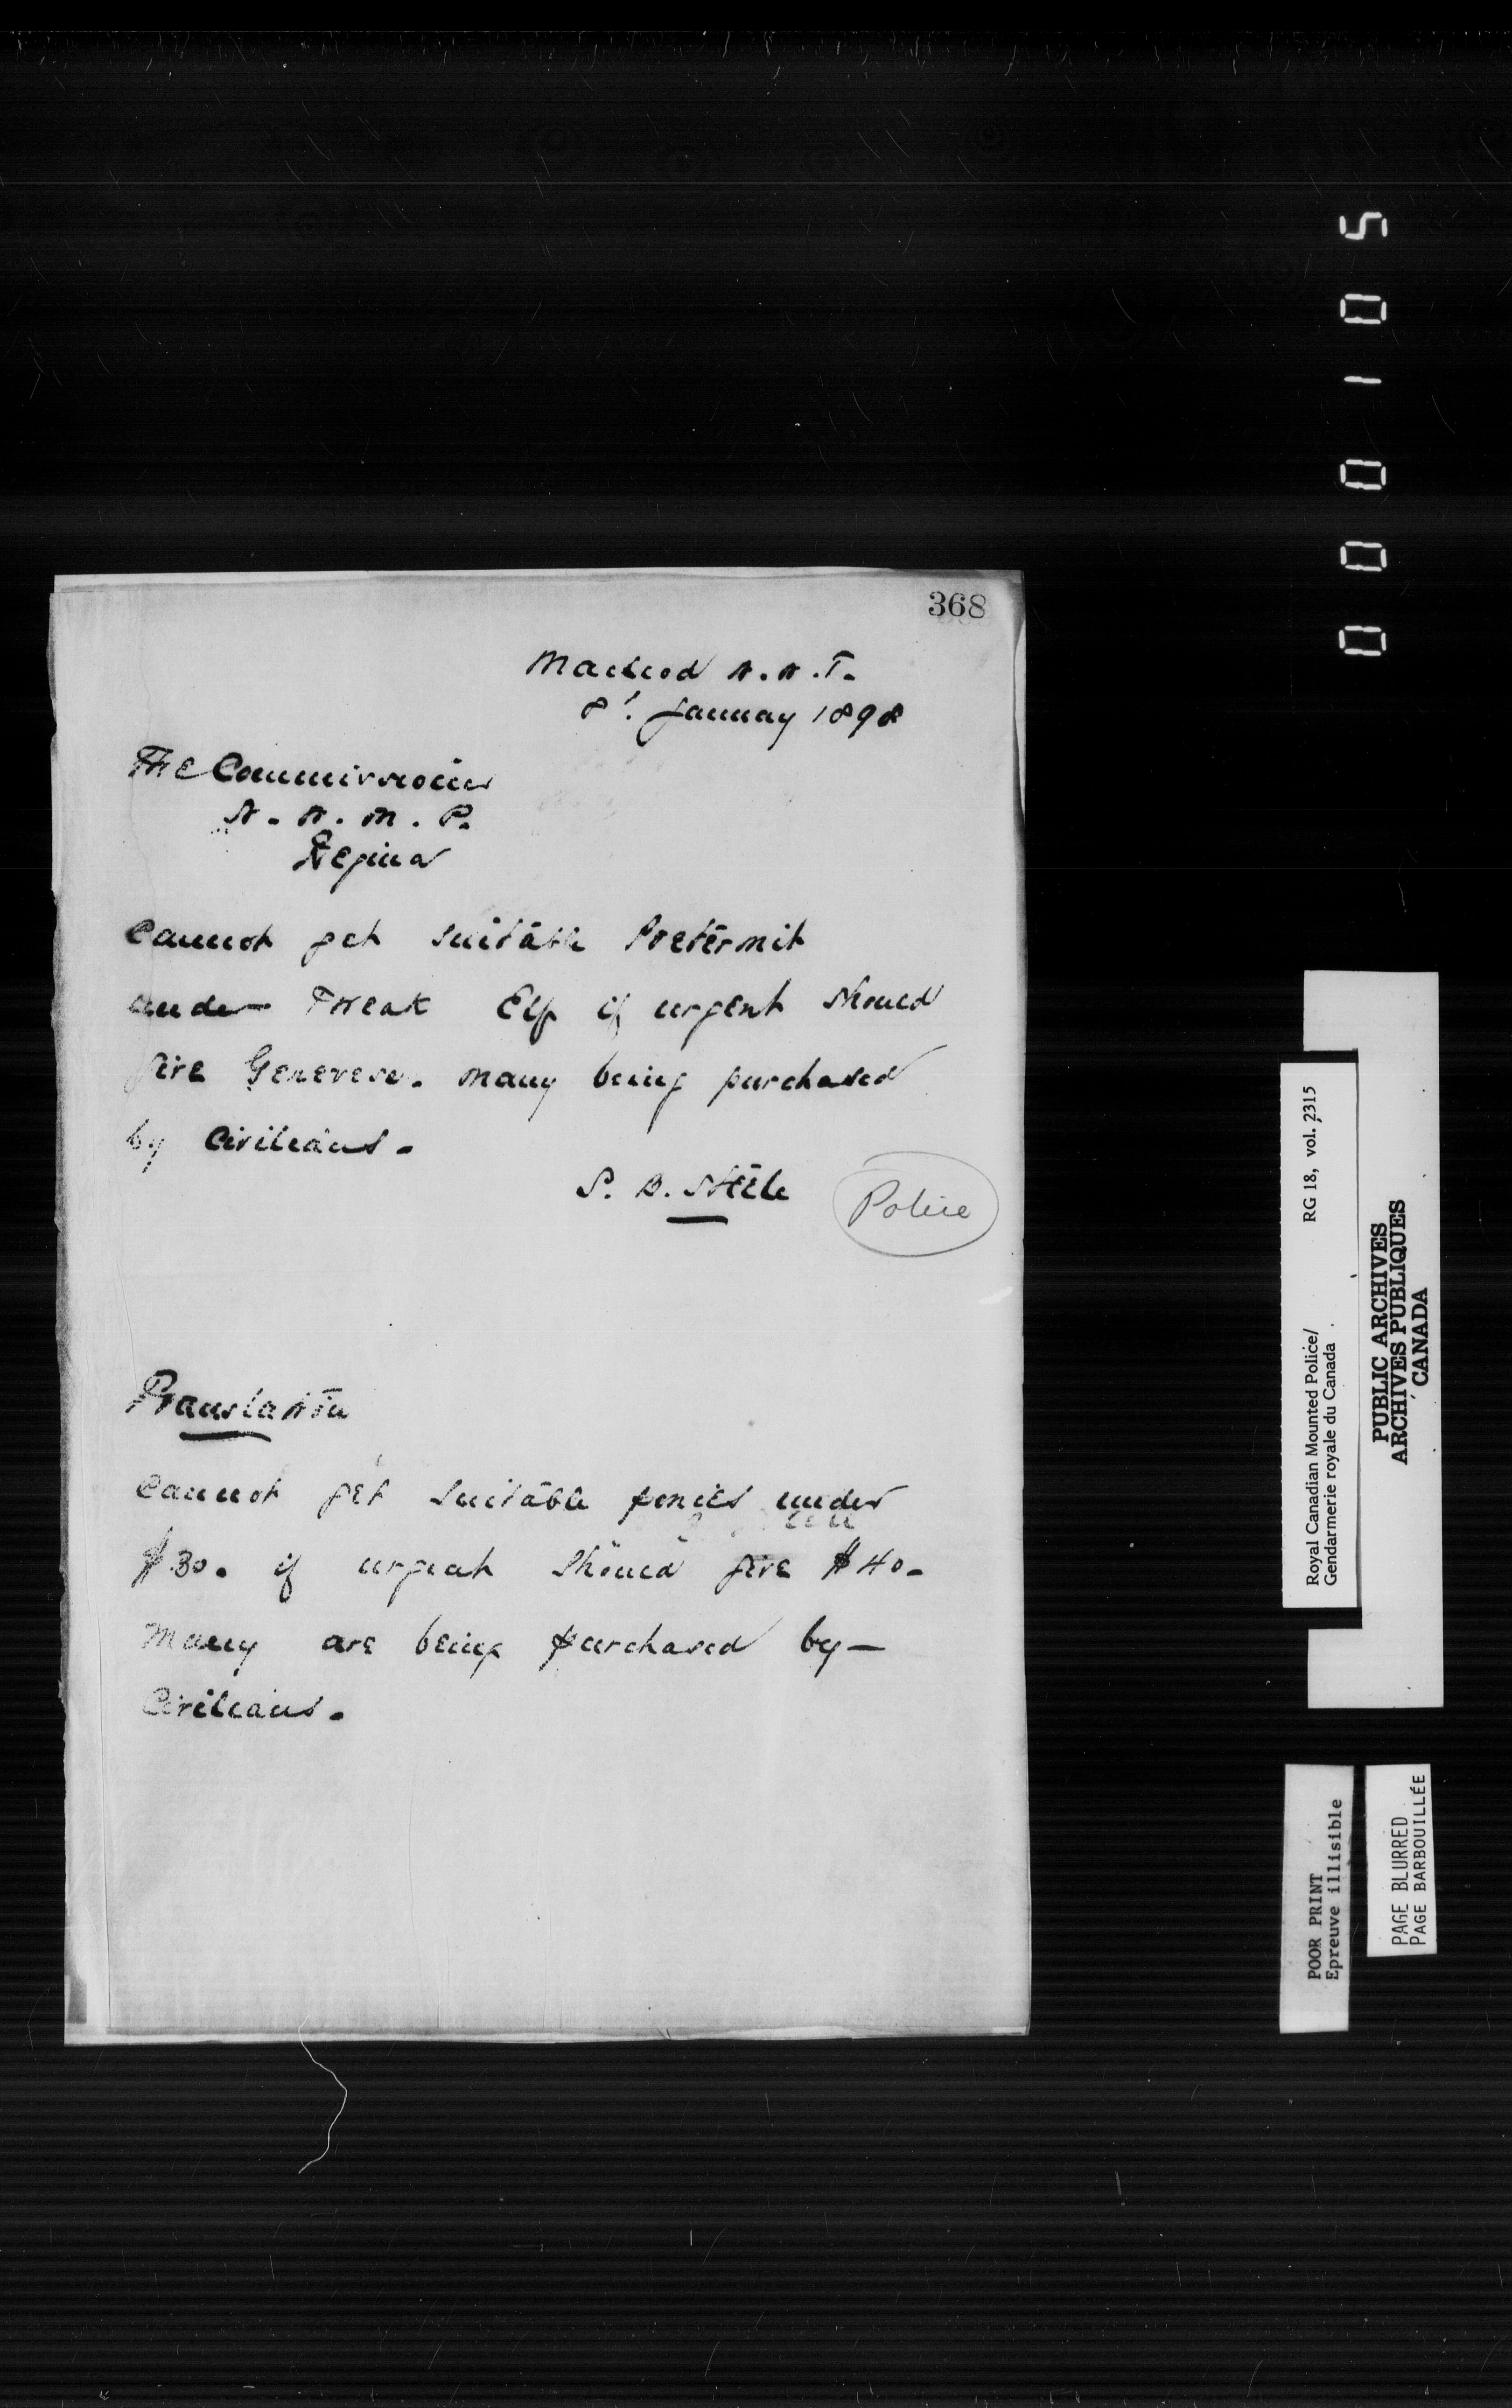 368
Macleod N.W.T.
8! January 1898
The Commissioner
N.W.M.P.
Regina
Cannot get suitable Pretermit
under Freak Elf if urgent should
give Genevese. Many being purchased
by Civilians.
S. B. Steele
Police
Translation
Cannot get suitable ponies under
$30. if urgent should give $40.
Many are being purchased by—
Civilians.
000105
RG 18, vol. 2315
Royal Canadian Mounted Police/
Gendarmerie royale du Canada
PUBLIC ARCHIVES
ARCHIVES PUBLIQUES
CANADA
POOR PRINT
Epreuve illisible
PAGE BLURRED
PAGE BARBOUILLÉE